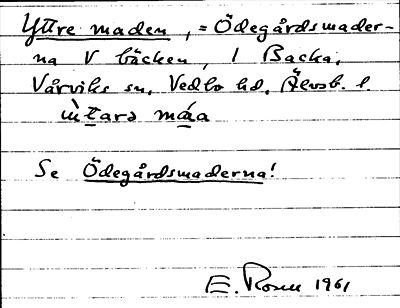 Yttre maden, = Ödegårdsmader-
na V bäcken, 1 Backa,
Vårviks sn, Vedbo hd, Älvsb. l.
ìttara máa
Se Ödegårdsmaderna!
E. Rosen 1961